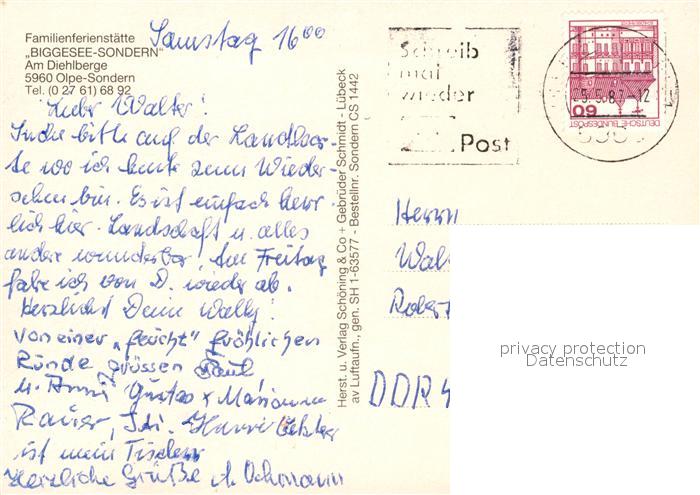 Familienferienstätte
„BIGGESEE-SONDERN"
Am Diehlberge
5960 Olpe-Sondern
Tel. (0 27 61) 68 92
Samstag 16⁰⁰
Lieber Walter!
Suche bitte auf der Landkar-
te wo ich heute zum Wieder-
sehen bin. Es ist einfach herr-
lich hier. Landschaft u. alles
andere wunderbar! Am Freitag
fahre ich von D. wieder ab.
Herzlichst Deine Wally!
Von einer „feucht" fröhlichen
Runde grüssen Paul
u. Anni Gustav + Marianne
ist mein Tischherr
Herzliche Grüße
Herst. u. Verlag Schöning & Co + Gebrüder Schmidt - Lübeck
av Luftaufn., gen. SH 1-63577 - Bestellnr. Sondern CS 1442
Schreib
mal
wieder
Post
60
DEUTSCHE BUNDESPOST
Herrn
Walt
Robert
DDR
privacy protection
Datenschutz